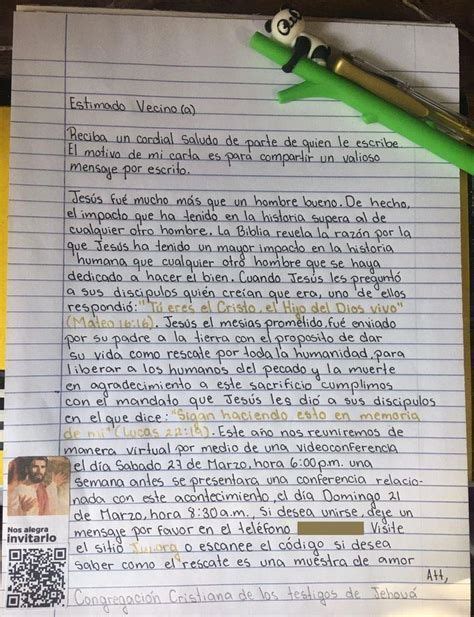 Estimado Vecino(a)
Reciba un cordial saludo de parte de quien le escribe.
El motivo de mi carta es para compartir un valioso
mensaje por escrito.
Jesús fué mucho más que un hombre bueno. De hecho,
el impacto que ha tenido en la historia supera al de
cualquier otro hombre. La Biblia revela la razón por la
que Jesús ha tenido un mayor impacto en la historia
humana que cualquier otro hombre que se haya
dedicado a hacer el bien. Cuando Jesús les preguntó
a sus discipulos quién creían que era, uno de ellos
respondió: "Tú eres el Cristo, el Hijo del Dios vivo"
(Mateo 16:16). Jesús el mesias prometido, fué enviado
por su padre a la tierra con el proposito de dar
su vida como rescate por toda la humanidad, para
liberar a los humanos del pecado y la muerte
en agradecimiento a este sacrificio cumplimos
con el mandato que Jesús les dió a sus discipulos
en el que dice: "Sigan haciendo esto en memoria
de mi" (Lucas 22:19). Este año nos reuniremos de
manera virtual por medio de una videoconferencia
el día Sabado 27 de Marzo, hora 6:00 p.m. una
semana antes se presentara una conferencia relacio-
nada con este acontecimiento, el día Domingo 21
de Marzo, hora 8:30 a.m., Si desea unirse, deje un
mensaje por favor en el teléfono Visite
el sitio Jw.org o escanee el código si desea
saber como el rescate es una muestra de amor
Att,
Congregación Cristiana de los testigos de Jehová
Nos alegra
invitarlo